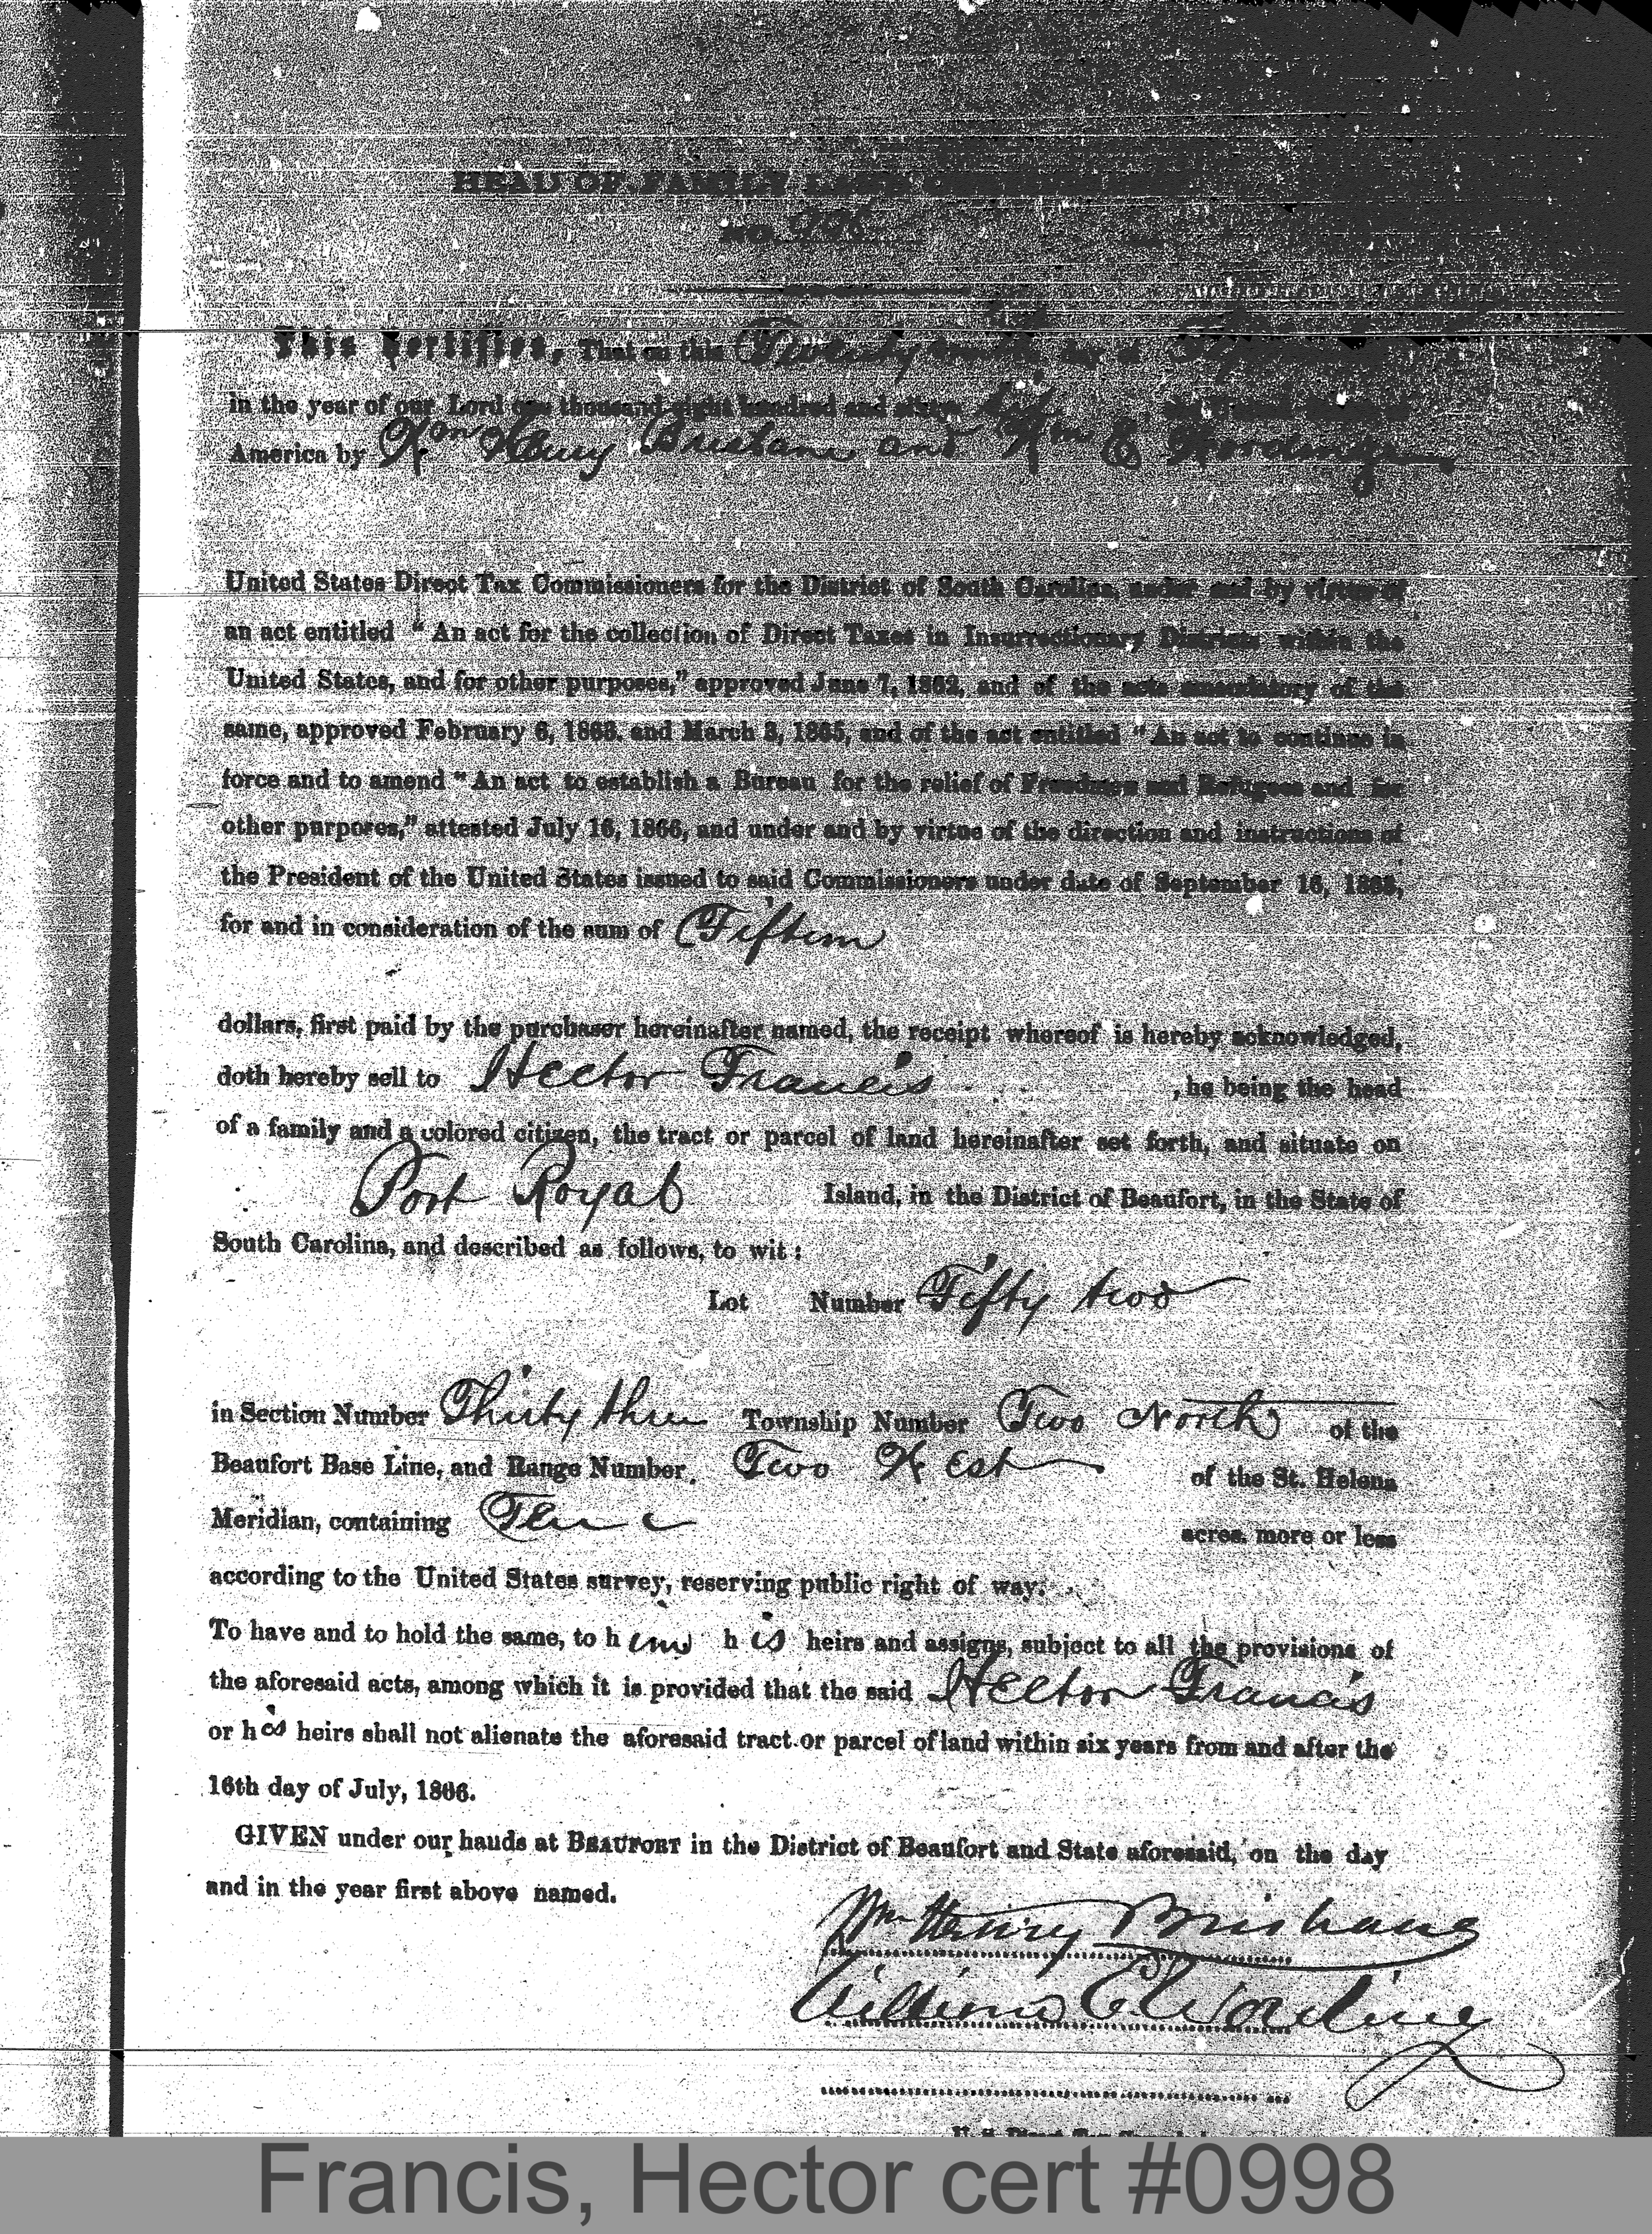 HEAD OF FAMILY LAND CERTIFICATE
NO. 998
This Certifies, That on this Twenty day of
in the year of our Lord one thousand eight hundred and sixty
America by Wm Henry Brisbane and Wm E Wording
United States Direct Tax Commissioners for the District of South Carolina, under and by virtue of
an act entitled "An act for the collection of Direct Taxes in Insurrectionary Districts within the
United States, and for other purposes," approved June 7, 1862, and of the acts amendatory of the
same, approved February 6, 1863. and March 3, 1865, and of the act entitled "An act to continue in
force and to amend "An act to establish a Bureau for the relief of Freedmen and Refugees and for
other purposes," attested July 16, 1866, and under and by virtue of the direction and instructions of
the President of the United States issued to said Commissioners under date of September 16, 1863,
for and in consideration of the sum of Fifteen
dollars, first paid by the purchaser hereinafter named, the receipt whereof is hereby acknowledged,
doth hereby sell to Hector Francis , he being the head
of a family and a colored citizen, the tract or parcel of land hereinafter set forth, and situate on
Port Royal Island, in the District of Beaufort, in the State of
South Carolina, and described as follows, to wit:
Lot Number Fifty two
in Section Number Thirty three Township Number Two North of the
Beaufort Base Line, and Range Number Two West of the St. Helena
Meridian, containing Ten acres, more or less
according to the United States survey, reserving public right of way.
To have and to hold the same, to him his heirs and assigns, subject to all the provisions of
the aforesaid acts, among which it is provided that the said Hector Francis
or his heirs shall not alienate the aforesaid tract or parcel of land within six years from and after the
16th day of July, 1866.
GIVEN under our hands at BEAUFORT in the District of Beaufort and State aforesaid, on the day
and in the year first above named.
Wm Henry Brisbane
William E Wording
Francis, Hector cert #0998